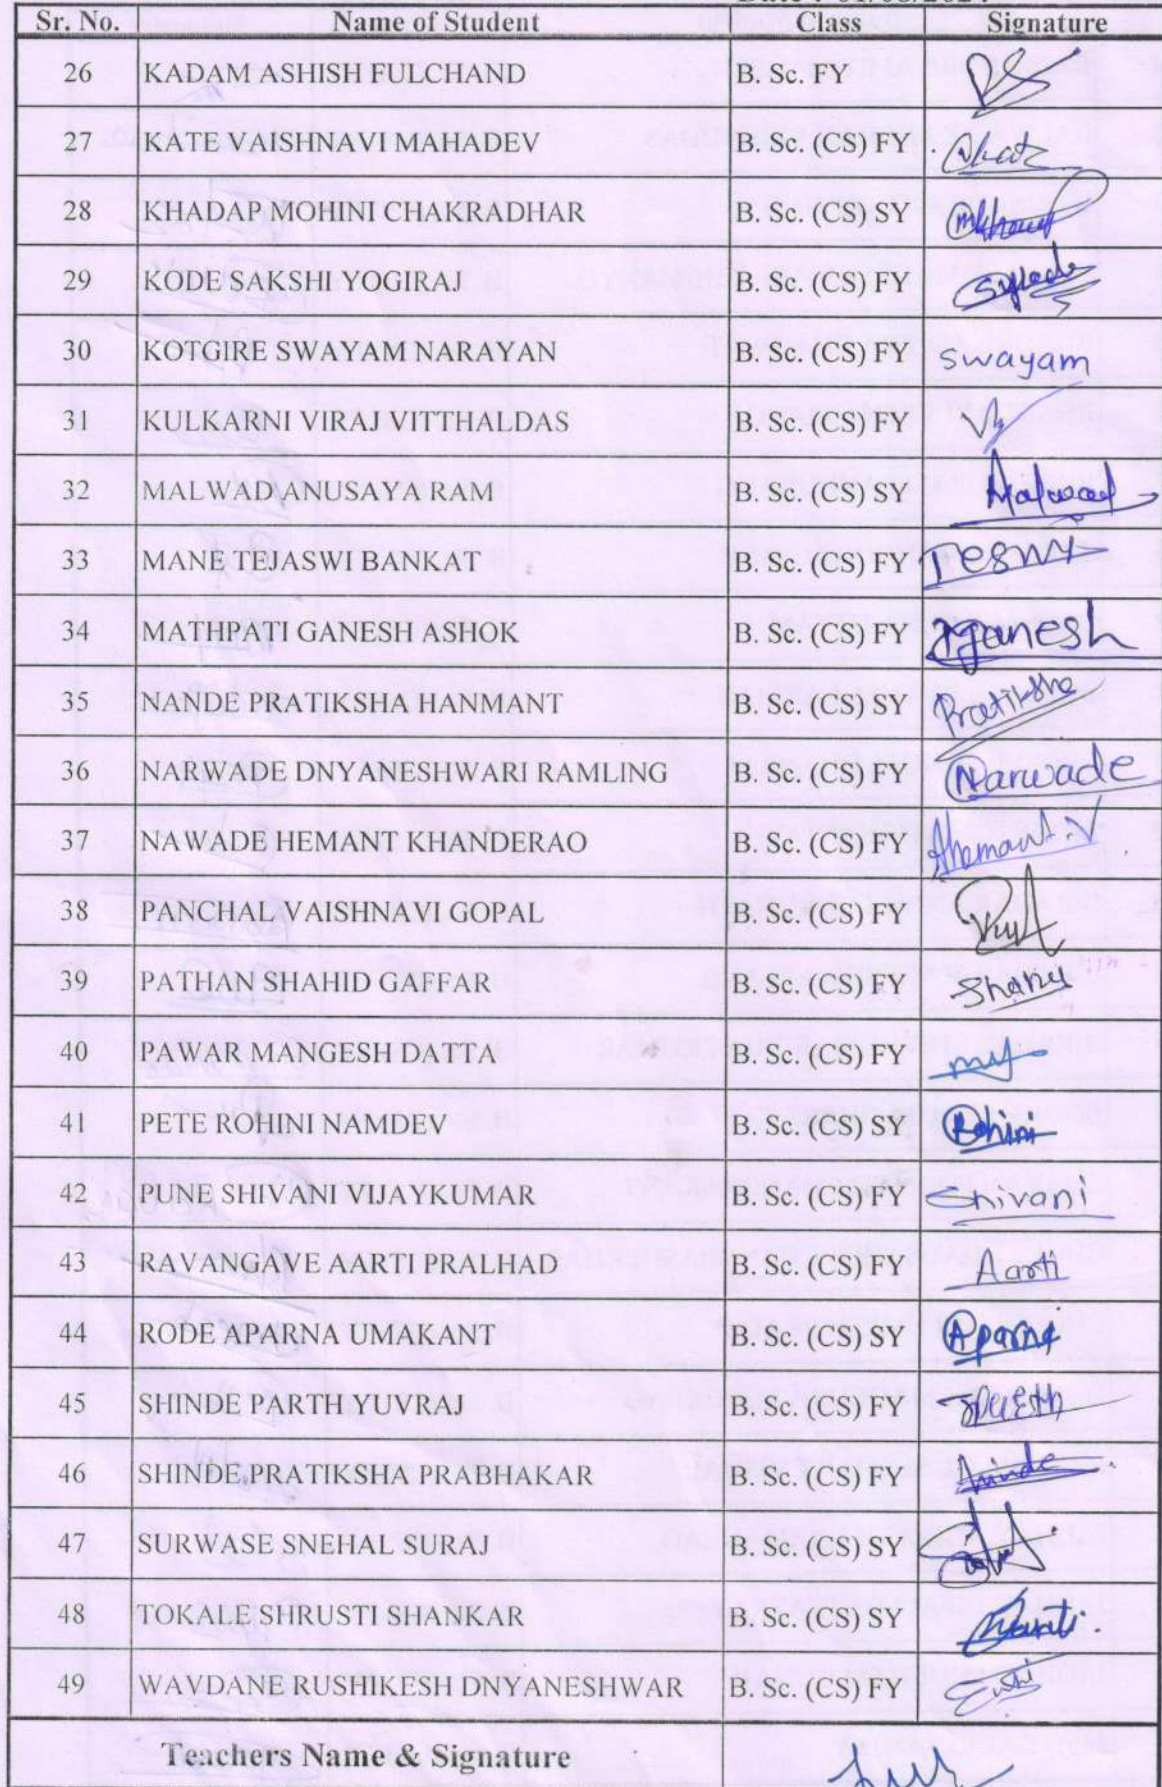 Sr. No. Name of Student Class Signature
26 KADAM ASHISH FULCHAND B. Sc. FY
27 KATE VAISHNAVI MAHADEV B. Sc. (CS) FY
28 KHADAP MOHINI CHAKRADHAR B. Sc. (CS) SY
29 KODE SAKSHI YOGIRAJ B. Sc. (CS) FY
30 KOTGIRE SWAYAM NARAYAN B. Sc. (CS) FY swayam
31 KULKARNI VIRAJ VITTHALDAS B. Sc. (CS) FY
32 MALWAD ANUSAYA RAM B. Sc. (CS) SY
33 MANE TEJASWI BANKAT B. Sc. (CS) FY
34 MATHPATI GANESH ASHOK B. Sc. (CS) FY
35 NANDE PRATIKSHA HANMANT B. Sc. (CS) SY Pratiksha
36 NARWADE DNYANESHWARI RAMLING B. Sc. (CS) FY Narwade
37 NAWADE HEMANT KHANDERAO B. Sc. (CS) FY
38 PANCHAL VAISHNAVI GOPAL B. Sc. (CS) FY
39 PATHAN SHAHID GAFFAR B. Sc. (CS) FY
40 PAWAR MANGESH DATTA B. Sc. (CS) FY
41 PETE ROHINI NAMDEV B. Sc. (CS) SY Rohini
42 PUNE SHIVANI VIJAYKUMAR B. Sc. (CS) FY Shivani
43 RAVANGAVE AARTI PRALHAD B. Sc. (CS) FY Aarti
44 RODE APARNA UMAKANT B. Sc. (CS) SY Aparna
45 SHINDE PARTH YUVRAJ B. Sc. (CS) FY
46 SHINDE PRATIKSHA PRABHAKAR B. Sc. (CS) FY
47 SURWASE SNEHAL SURAJ B. Sc. (CS) SY
48 TOKALE SHRUSTI SHANKAR B. Sc. (CS) SY
49 WAVDANE RUSHIKESH DNYANESHWAR B. Sc. (CS) FY
Teachers Name & Signature